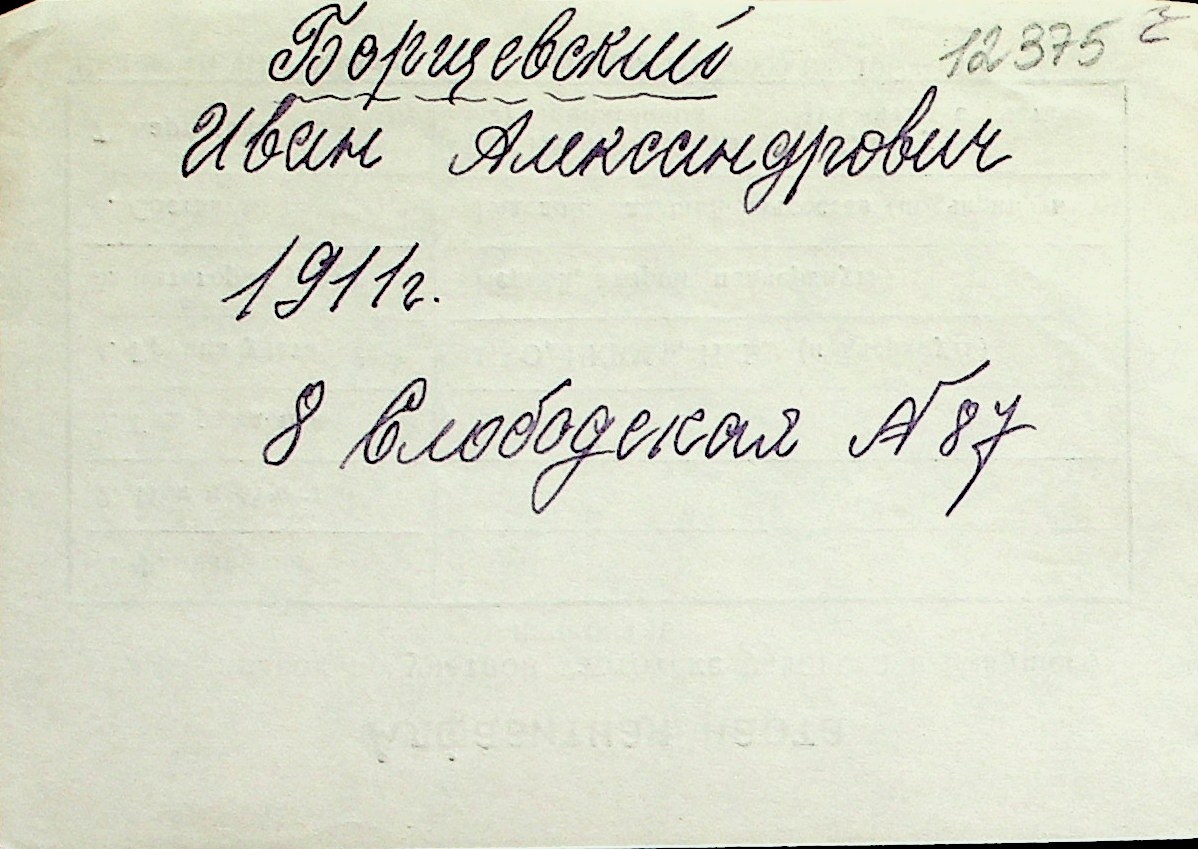 12375
Борщевский
Иван Александрович
1911г.
8 Слободская № 87